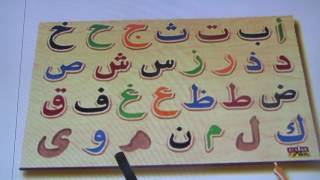 أ ب ت ث ج ح خ
د ذ ر ز س ش ص
ض ط ظ ع غ ف ق
ك ل م ن ه و ى